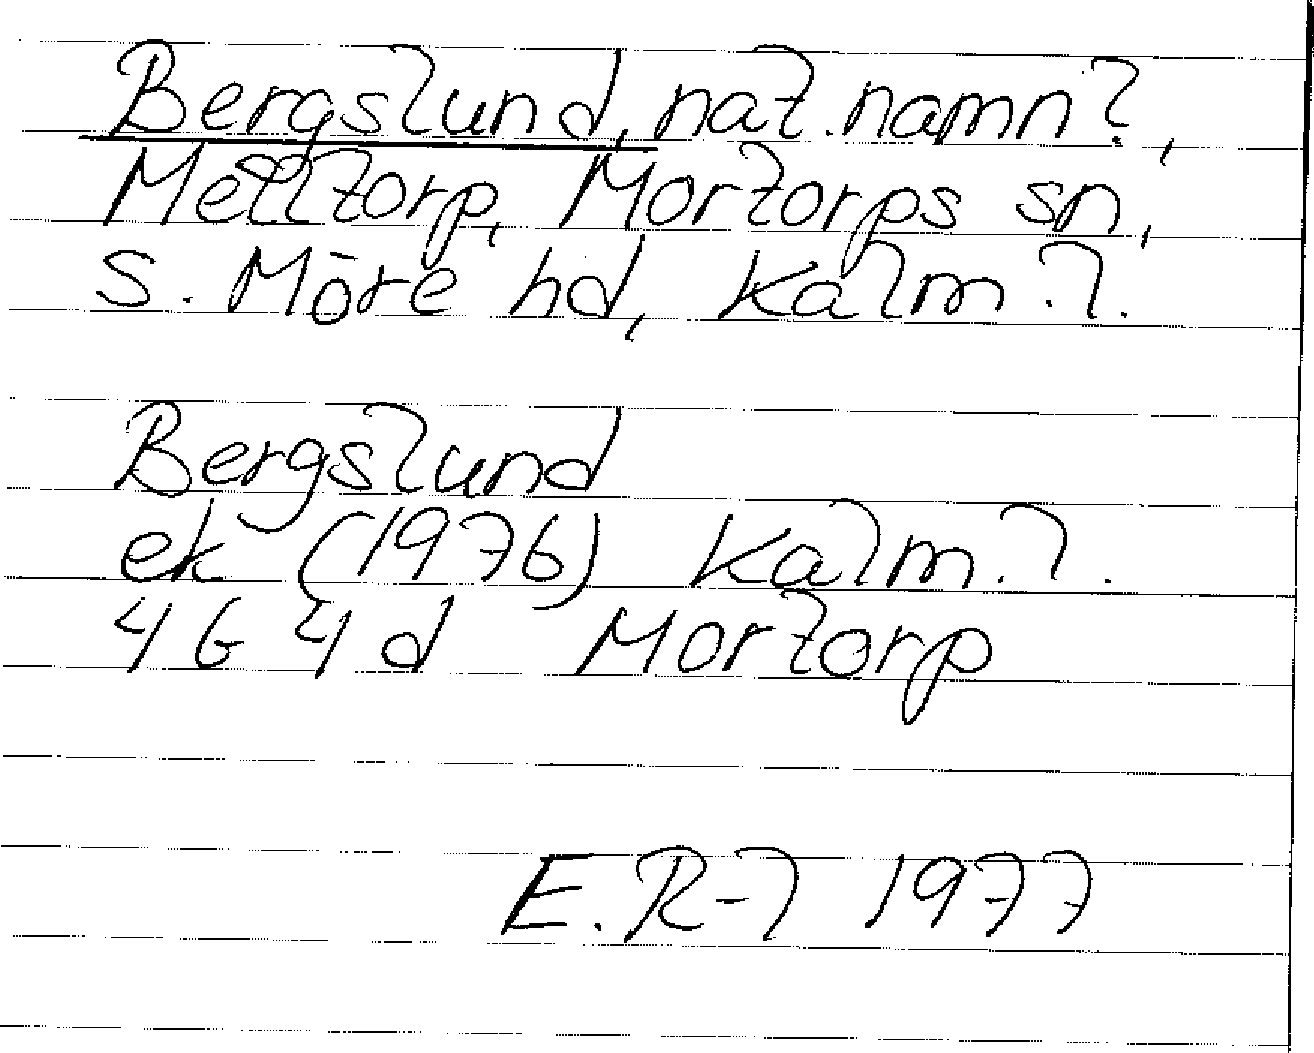 Bergslund, nat.namn?,
Melltorp, Mortorps sn,
S. Möre hd, Kalm.l.
Bergslund
ek (1976) Kalm.l.
4G 4d Mortorp
E.R-l 1977